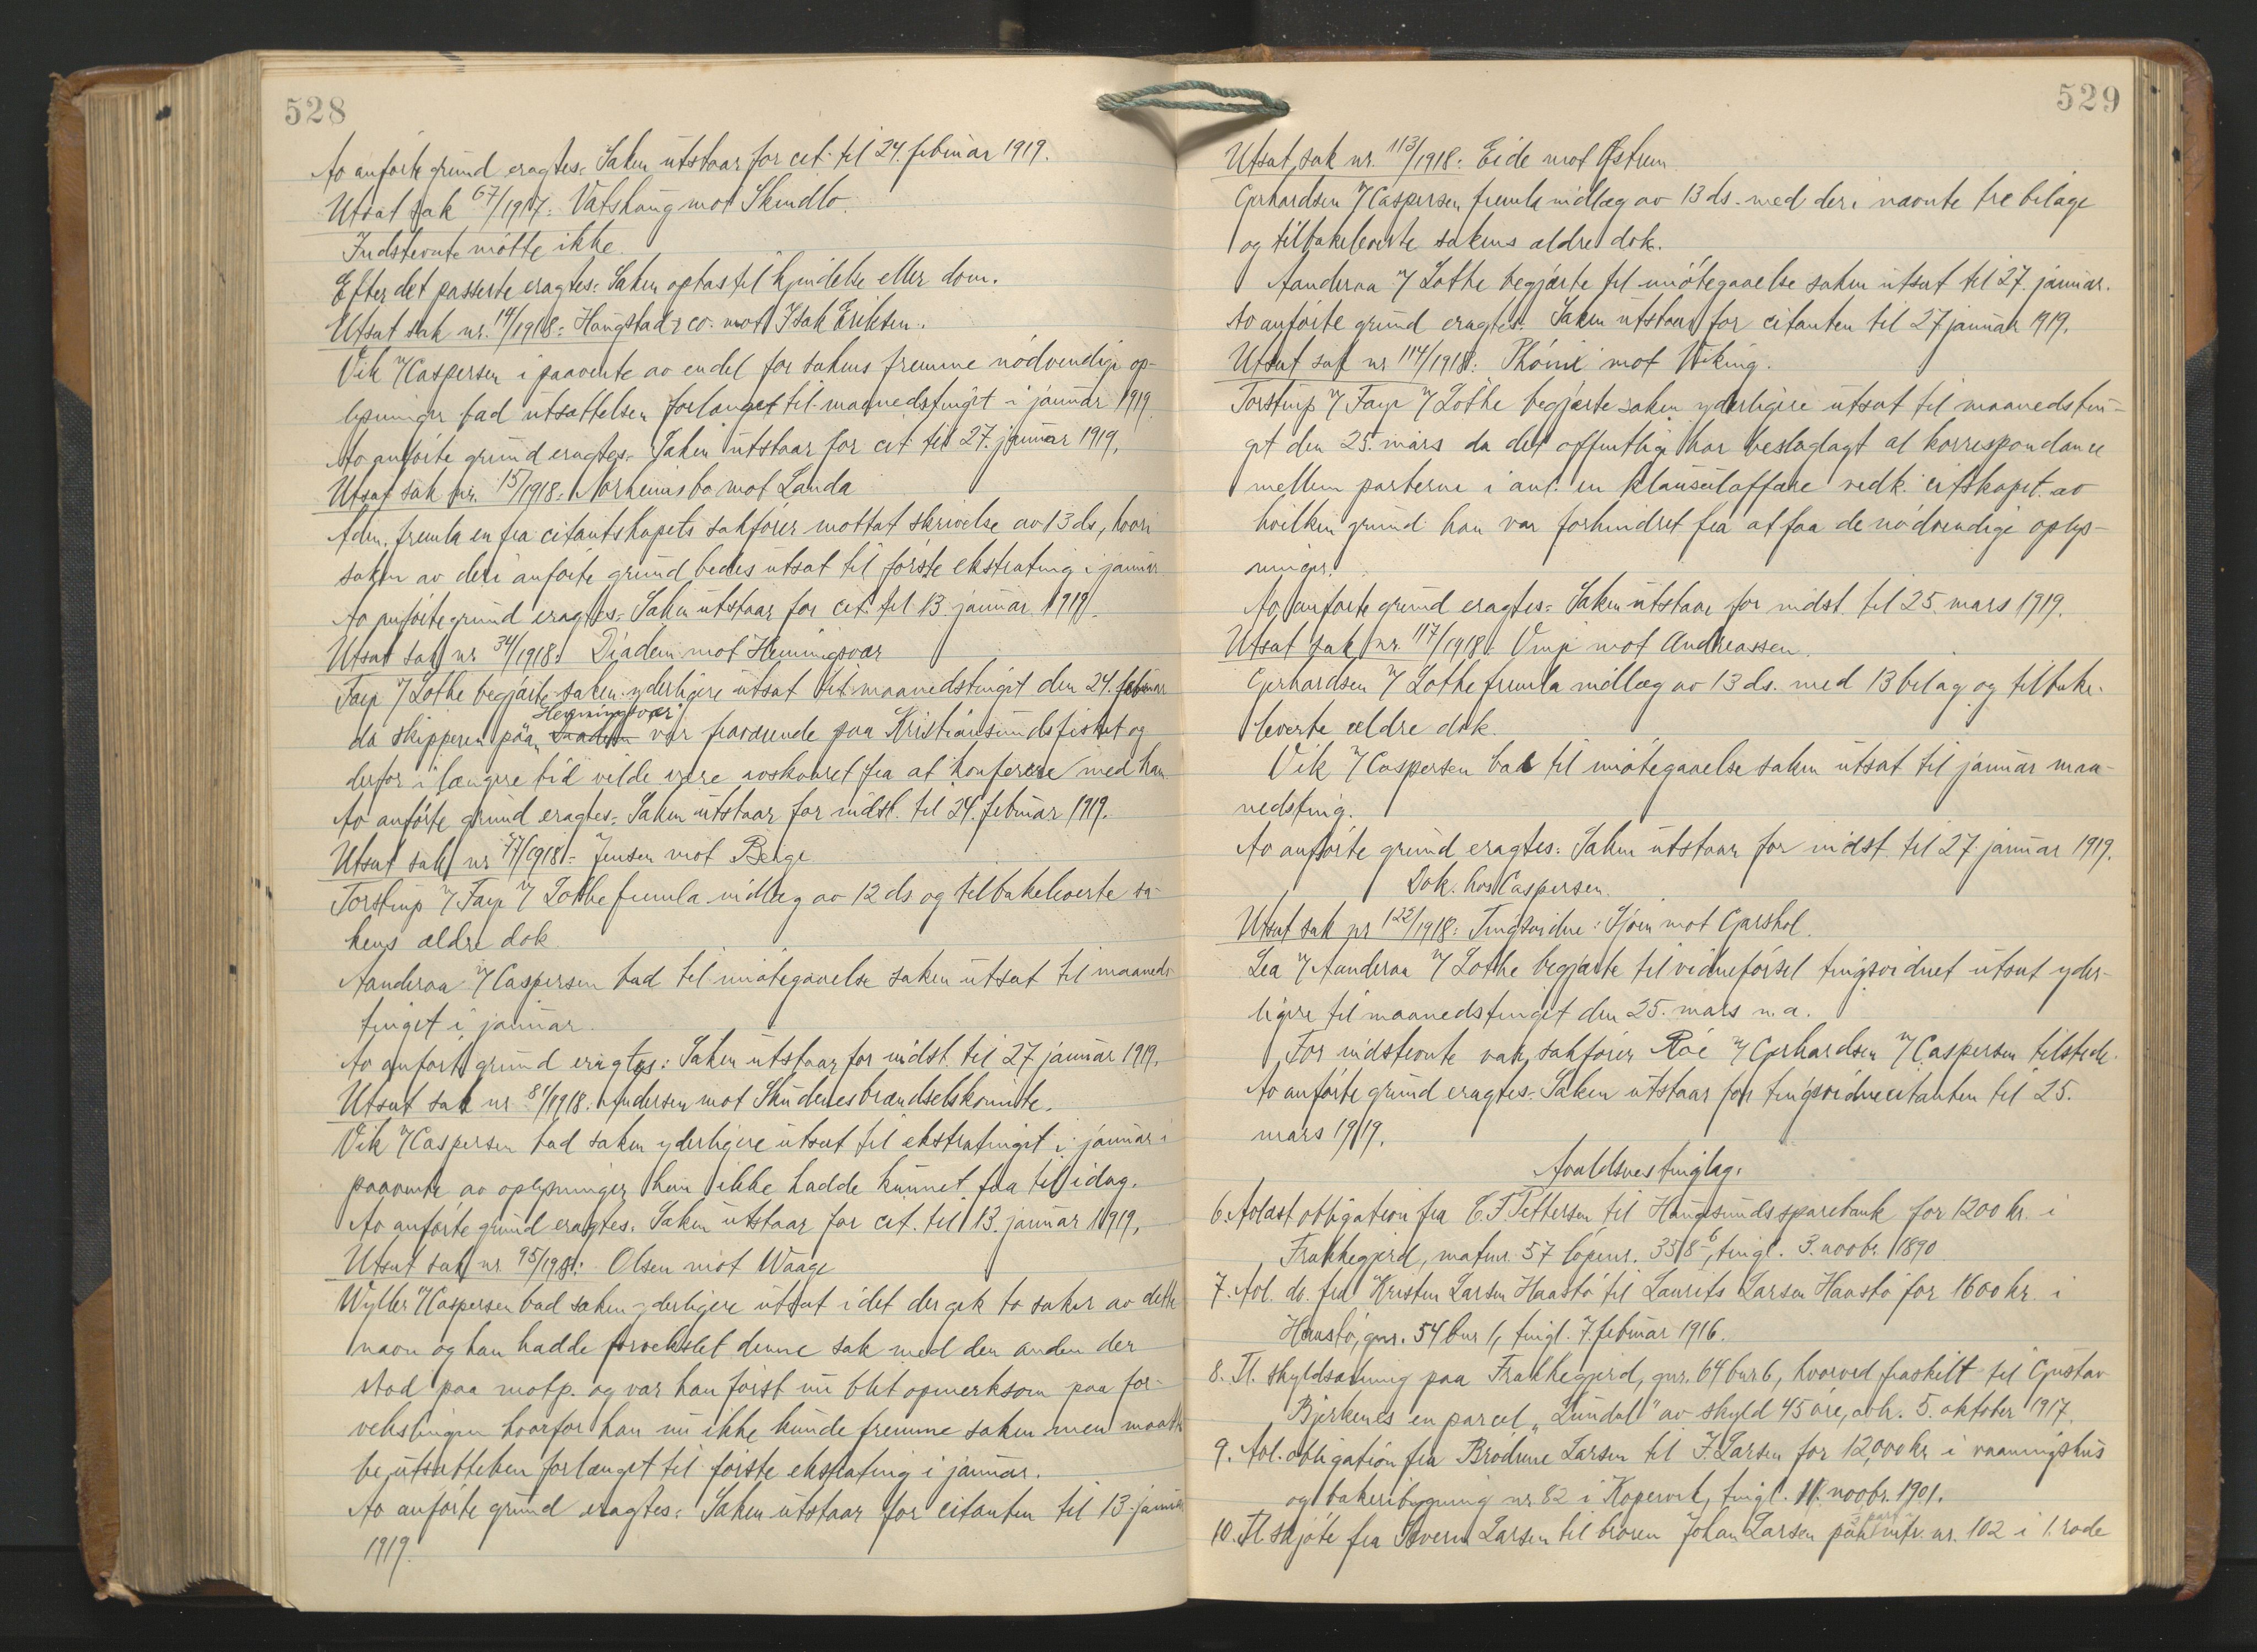 528
Av anførte grund eragtes: Saken utstaar for cit. til 24. februar 1919.
Utsat sak 67/1917: Vatshaug mot Skeudlo.
Indstevnte møtte ikke.
Efter det passerte eragtes: Saken optas til kjendelse eller dom.
Utsat sak nr. 14/1918: Haugstad & co. mot Isak Eriksen.
Vik v/ Caspersen i paavente av endel for sakens fremme nødvendige op-
lysninger bad utsættelsen forlænget til maanedstinget i januar 1919.
Av anførte grund eragtes: Saken utstaar for cit. til 27. januar 1919.
Utsat sak nr. 15/1918: Norheimsbo mot Landa
Adm. fremla en fra citantskapets sakfører mottat skrivelse av 13 ds, hvori
saken av deri anførte grund bedes utsat til første ekstrating i januar
Av anførte grund eragtes: Saken utstaar for cit. til 13. januar 1919.
Utsat sak nr 34/1918: Diadem mot Henningsvær
Faye v/ Lothe begjærte saken yderligere utsat til maanedstinget den 24. februar
da skipperen paa „Henningsvær" var fraværende paa Kristiansundsfisket og
derfor i længere tid vilde være avskaaret fra at konferere med ham
Av anførte grund eragtes: Saken utstaar for indst. til 24. februar 1919.
Utsat sak nr 77/1918: Jensen mot Berge
Torstrup v/ Faye v/ Lothe fremla indlæg av 12 ds og tilbakeleverte sa-
kens ældre dok
Aanderaa v/ Caspersen bad til imøtegaaelse saken utsat til maaneds
tinget i januar.
Av anførte grund eragtes: Saken utstaar for indst. til 27. januar 1919.
Utsat sak nr 81/1918: Andersen mot Skudenes brændselskomite.
Vik v/ Caspersen bad saken yderligere utsat til ekstratinget i januar i
paavente av oplysninger han ikke hadde kunnet faa til idag.
Av anførte grund eragtes: Saken utstaar for cit. til 13. januar 1919.
Utsat sak nr. 95/1918: Olsen mot Waage
Wyller v/ Caspersen bad saken yderligere utsat idet der gik to saker av dette
navn og han hadde forvekslet denne sak med den anden der
stod paa motp. og var han først nu blit opmerksom paa for-
vekslingen hvorfor han nu ikke kunde fremme saken men maatte
be utsættelsen forlænget til første ekstrating i januar.
Av anførte grund eragtes: Saken utstaar for citanten til 13. januar
1919.
529
Utsat sak nr. 113/1918: Eide mot Østrem
Gerhardsen v/ Caspersen fremla indlæg av 13 ds. med deri nævnte tre bilage
og tilbakeleverte sakens ældre dok.
Aanderaa v/ Lothe begjærte til imøtegaaelse saken utsat til 27. januar.
Av anførte grund eragtes: Saken utstaar for citanten til 27 januar 1919.
Utsat sak nr 114/1918: Phønix mot Viking.
Torstrup v/ Faye v/ Lothe begjærte saken yderligere utsat til maanedstin-
get den 25. mars da det offentlige har beslaglagt al korrespondance
mellem parterne i anl. en klausulaffære vedk. citskapet av
hvilken grund han var forhindret fra at faa de nødvendige oplys-
ninger.
Av anførte grund eragtes: Saken utstaar for indst. til 25. mars 1919.
Utsat sak nr. 117/1918: Vinje mot Andreassen.
Gerhardsen v/ Lothe fremla indlæg av 13 ds. med 13 bilag og tilbake-
leverte ældre dok.
Vik v/ Caspersen bad til imøtegaaelse saken utsat til januar maa-
nedsting.
Av anførte grund eragtes: Saken utstaar for indst. til 27. januar 1919.
Dok. hos Caspersen.
Utsat sak nr 122/1918: Tingsvidne: Sjøen mot Garshol.
Lea v/ Aanderaa v/ Lothe begjærte til vidneførsel tingsvidnet utsat yder-
ligere til maanedstinget den 25. mars n.a.
For indstevnte var sakfører Røe v/ Gerhardsen v/ Caspersen tilstede.
Av anførte grund eragtes: Saken utstaar for tingsvidnecitanten til 25.
mars 1919.
Avaldsnes tinglag.
6. Avlæst obligation fra C. F. Pettersen til Haugesunds sparebank for 1200 kr. i
Frakkegjerd, matnr. 57 løpenr. 358 b, tingl. 3. novbr. 1890
7. Avl. do. fra Kristen Larsen Haastø til Laurits Larsen Haastø for 1600 kr. i
Haastø, gnr. 54 bnr 1, tingl. 7. februar 1916.
8. Tl. skyldsætning paa Frakkegjerd, gnr. 64 bnr 6, hvorved fraskilt til Gustav
Bjerkenes en parcel „Lundal" av skyld 45 øre, avh. 5. oktober 1917.
9. Avl. obligation fra Brødrene Larsen til J. Larsen for 12,000 kr i vaaningshus
og bakeribygning nr. 82 i Kopervik, tingl. 11. novbr. 1901.
10. Tl. skjøte fra Severin Larsen til broren Johan Larsen paa part mtr. nr. 102 i 1. rode